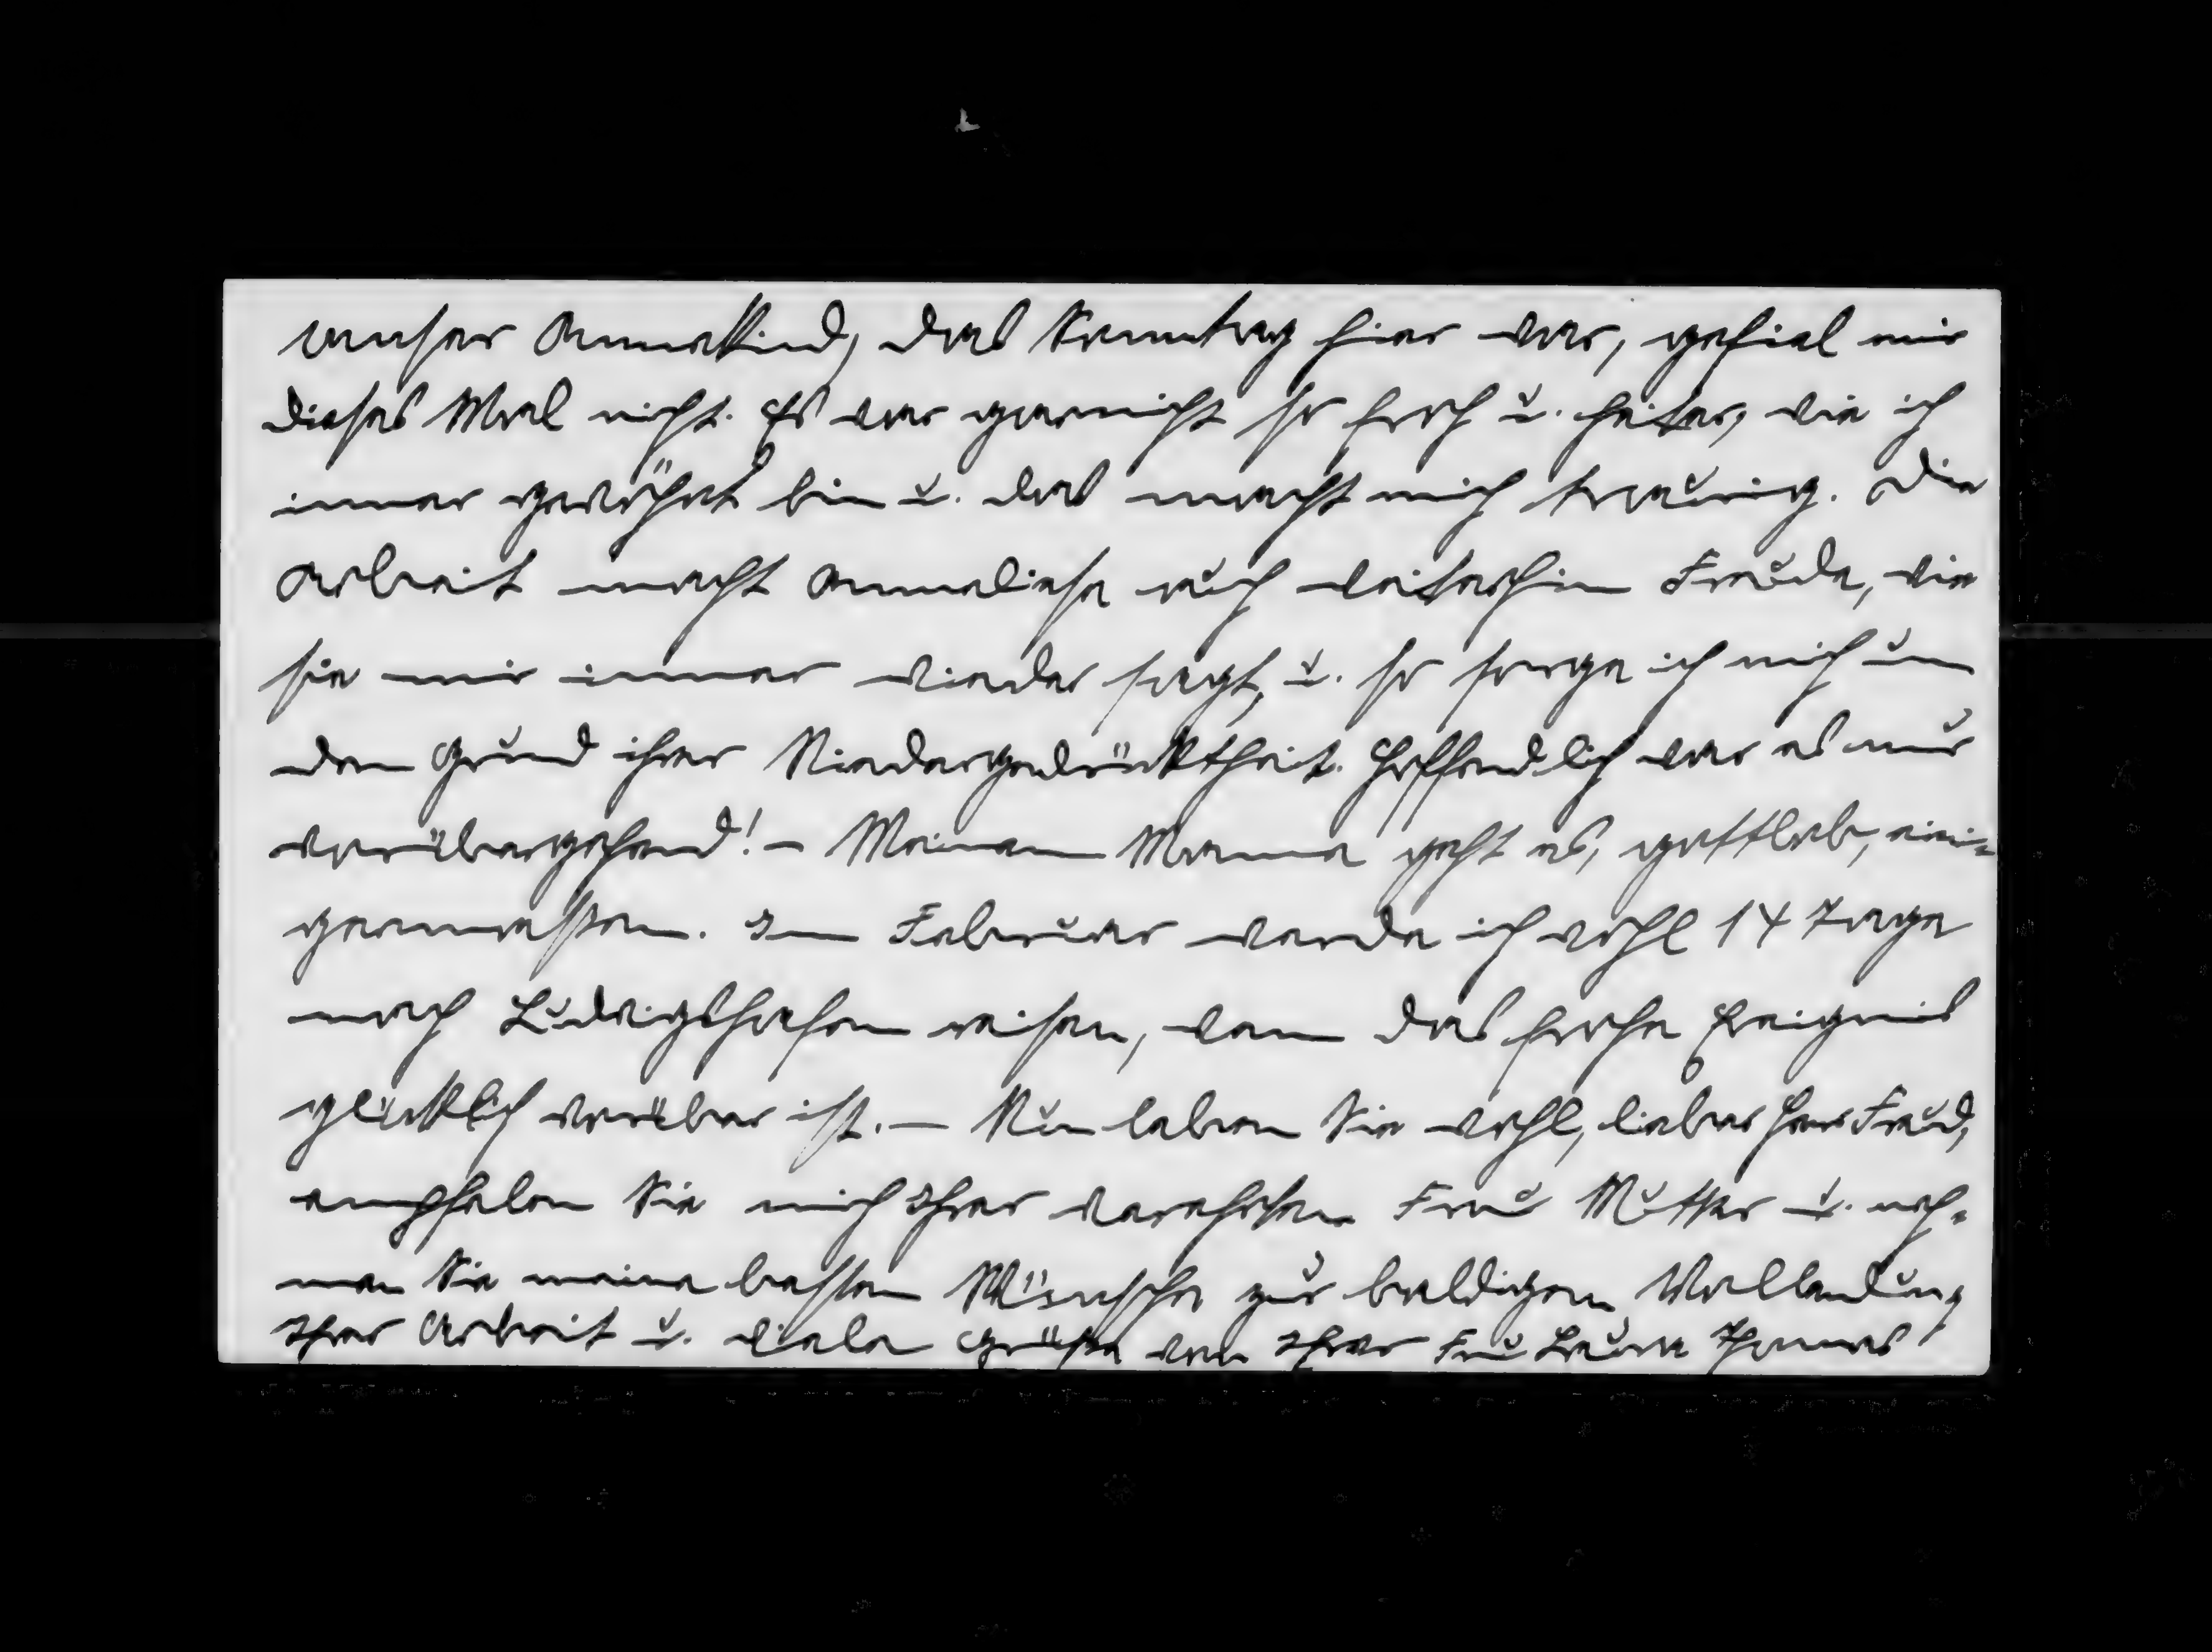 Unser Annakind, das Sonntag hier war, gefiel mir
dieses Mal nicht. Es war garnicht so froh u. heiter, wie ich
immer gewöhnt bin u. das macht mich traurig. Die
Arbeit macht Anneliese auch weiterhin Freude, wie
sie mir immer wieder sagt, u. so sorge ich mich um
den Grund ihrer Niedergedrücktheit. Hoffendlich war es nur
vorübergehend! – Meinem Manne geht es, gottlob, eini-
germaßen. Im Februar werde ich wohl 14 Tage
nach Ludwigshafen reisen, wenn das frohe Ereignis
glücklich vorüber ist. – Nun leben Sie wohl, lieber Herr
empfehlen Sie mich Ihrer verehrten Frau Mutter u. neh-
men Sie meine besten Wünsche zur baldigen Vollendung
Ihrer Arbeit u. viele Grüße von Ihrer Frau Thomas